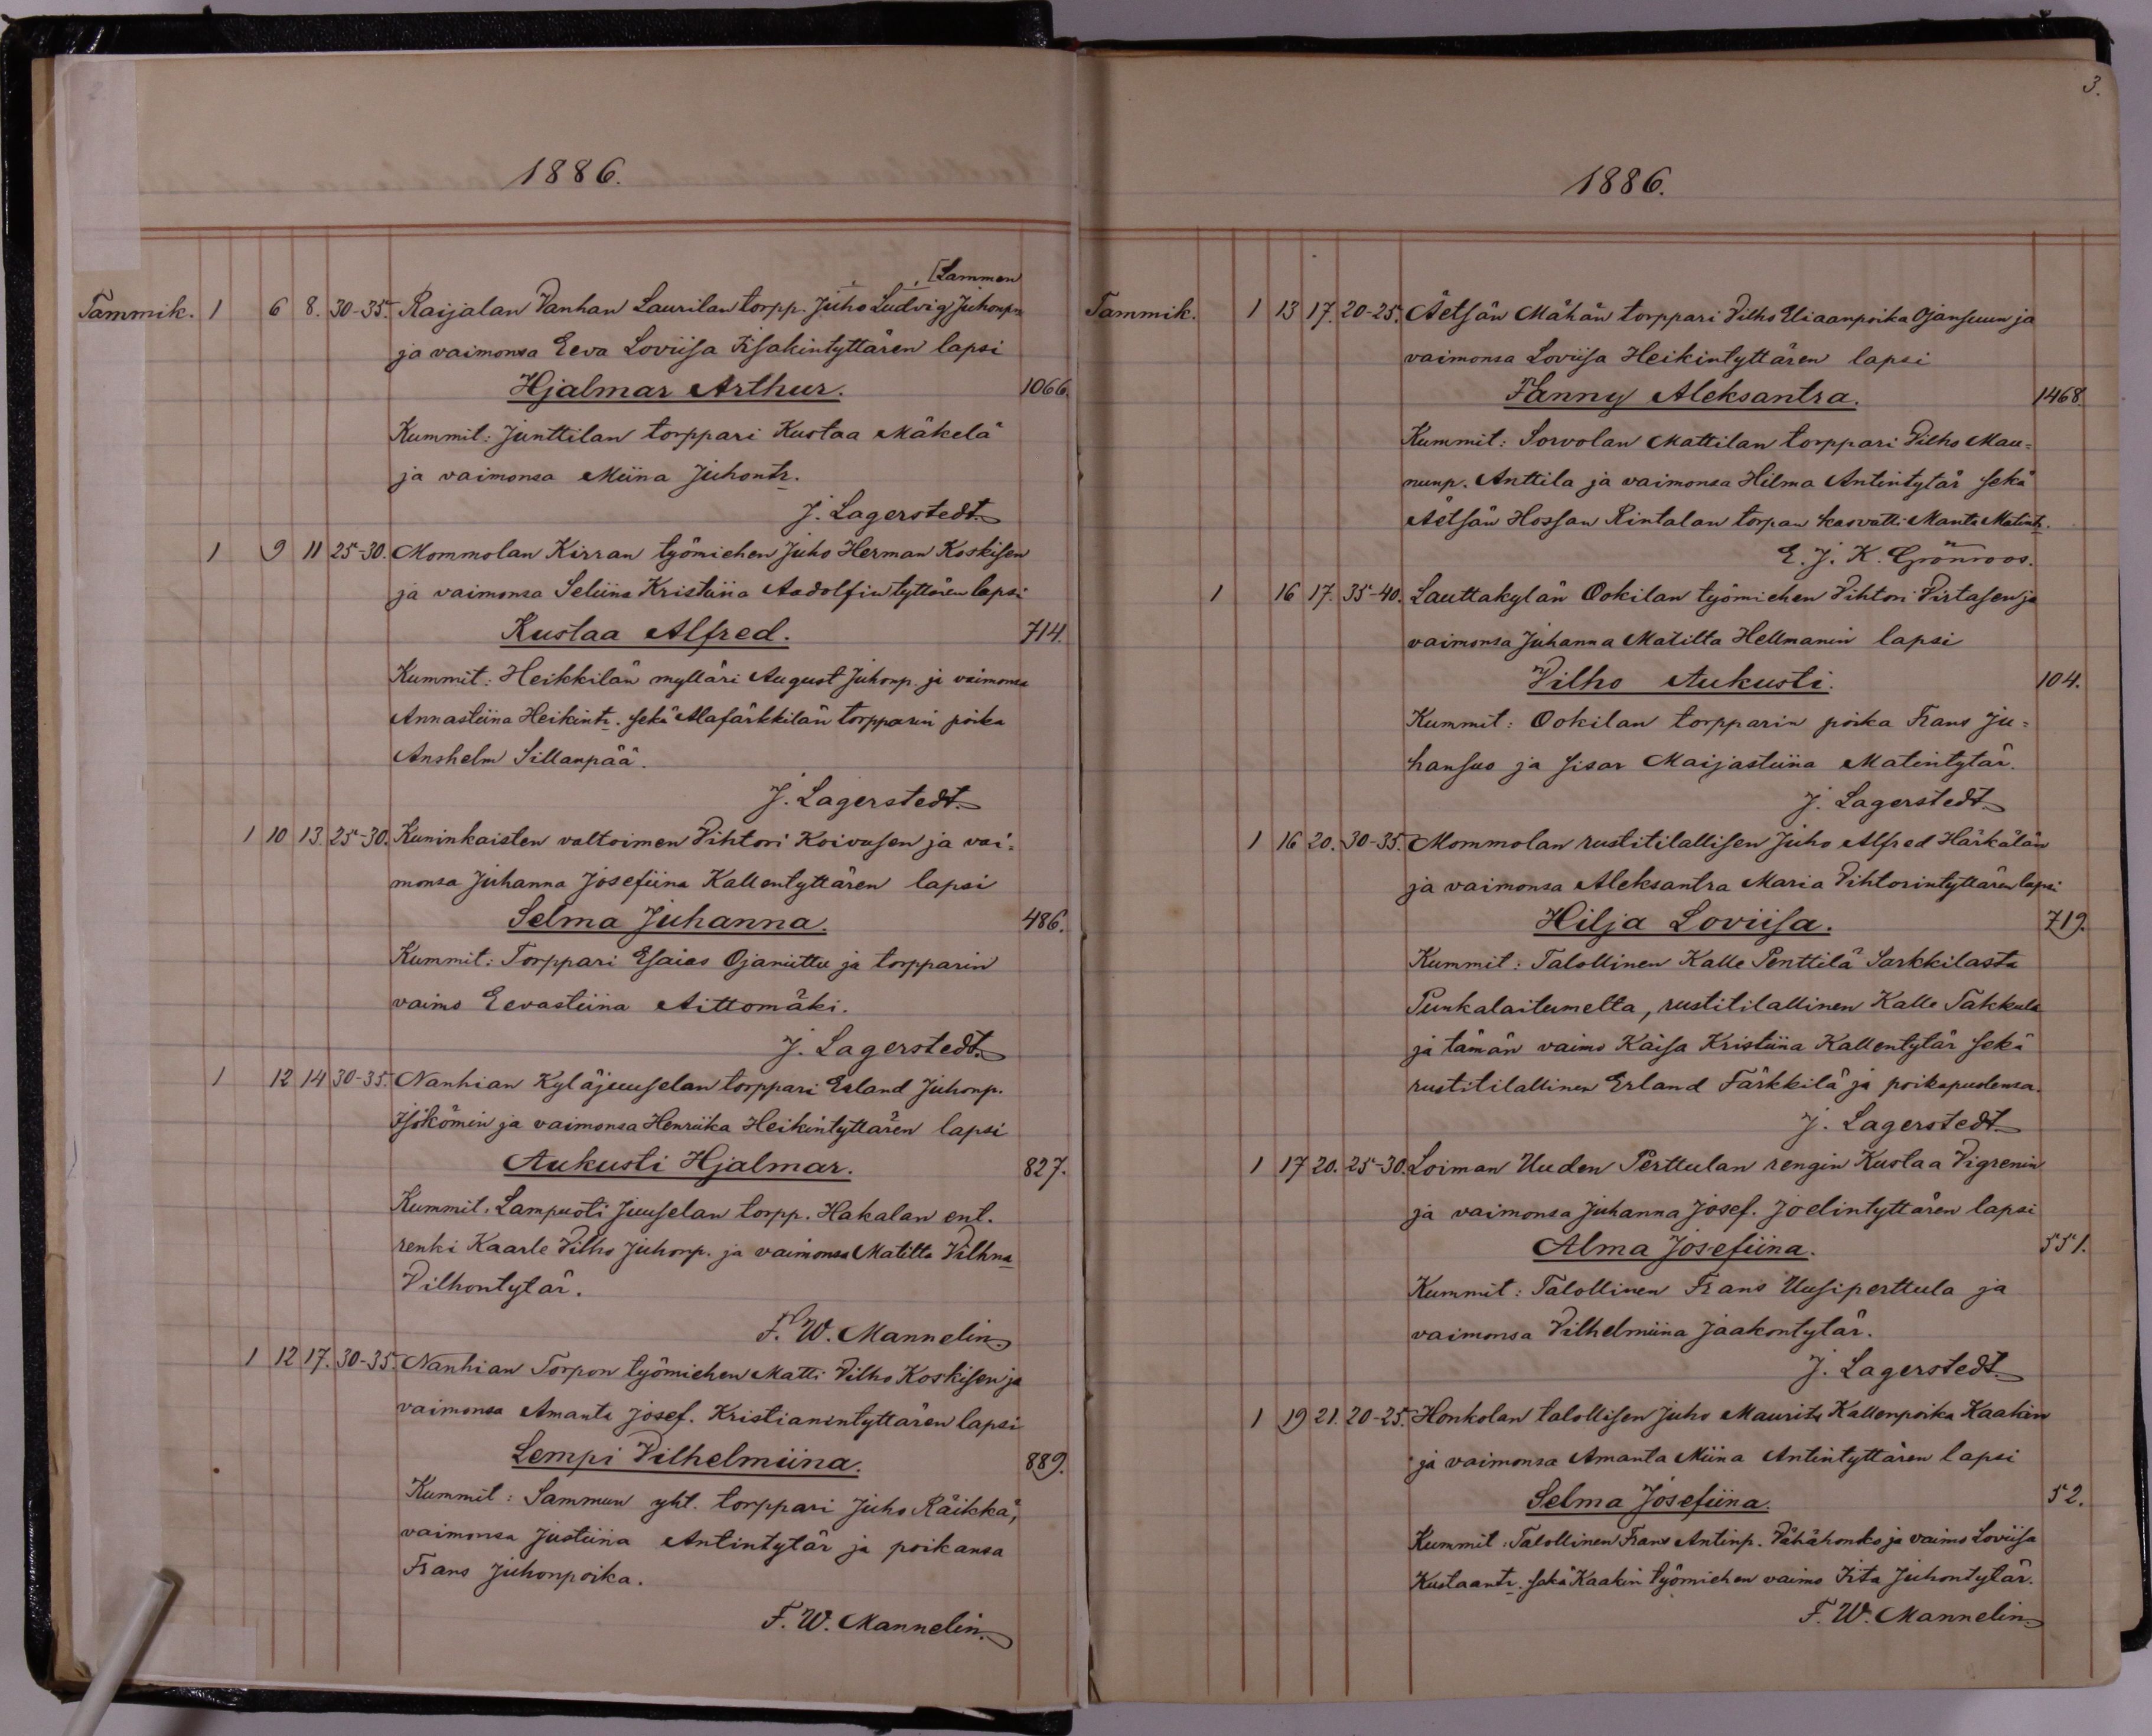 1886.
[Lammen
Tammik. 1 6 8. 30-35. Raijalan Vanhan Laurilan torpp. Juho Ludvig Juhonp:n
ja vaimonsa Eeva Loviisa Iisakintyttären lapsi
Hjalmar Arthur. 1066.
Kummit: Junttilan torppari Kustaa Mäkelä
ja vaimonsa Miina Juhontr.
J. Lagerstedt.
1 9 11 25-30. Mommolan Kirran työmiehen Juho Herman Koskisen
ja vaimonsa Seliina Kristiina Aadolfintyttären lapsi
Kustaa Alfred. 714.
Kummit: Heikkilän mylläri August Juhonp. ja vaimonsa
Annastiina Heikintr. sekä Alafärkkilän torpparin poika
Anshelm Sillanpää.
J. Lagerstedt.
1 10 13. 25-30. Kuninkaisten valtoimen Vihtori Koivusen ja vai-
monsa Juhanna Josefiina Kallentyttären lapsi
Selma Juhanna. 486.
Kummit: Torppari Esaias Ojaniittu ja torpparin
vaimo Eevastiina Aittomäki.
J. Lagerstedt.
1 12 14 30-35. Nanhian Kyläjuuselan torppari Erland Juhonp.
Isökömin ja vaimonsa Henriika Heikintyttären lapsi
Aukusti Hjalmar. 827.
Kummit. Lampuoti Juuselan torpp. Hakalan ent.
renki Kaarle Vilho Juhonp. ja vaimonsa Matilta Vilhna
Vilhontytär.
F. W. Mannelin.
1 12 17. 30-35. Nanhian Torpon työmiehen Matti Vilho Koskisen ja
vaimonsa Amanta Josef. Kristianintyttären lapsi
Lempi Vilhelmiina. 889.
Kummit: Sammun yht. torppari Juho Räikkä,
vaimonsa Justiina Antintytär ja poikansa
Frans Juhonpoika.
F. W. Mannelin.
3.
1886.
Tammik. 1 13 17. 20-25. Äetsän Mähän torppari Vilho Eliaanpoika Ojansuun ja
vaimonsa Loviisa Heikintyttären lapsi
Fanny Aleksantra. 1468.
Kummit: Sorvolan Mattilan torppari Vilho Mau-
nunp. Anttila ja vaimonsa Hilma Antintytär sekä
Äetsän Hossan Rintalan torpan kasvatti Manta Matintr.
E. J. K. Grönroos.
1 16 17. 35-40. Lauttakylän Ookilan työmiehen Vihtori Virtasen ja
vaimonsa Juhanna Matilta Hellmanin lapsi
Vilho Aukusti. 104.
Kummit: Ookilan torpparin poika Frans Ju-
hansuo ja sisar Maijastiina Matintytär.
J. Lagerstedt.
1 16 20. 30-35. Mommolan rustitilallisen Juho Alfred Härkälän
ja vaimonsa Aleksantra Maria Vihtorintyttären lapsi
Hilja Loviisa. 719.
Kummit: Talollinen Kalle Penttilä Sarkkilasta
Punkalaitumelta, rustitilallinen Kalle Takkula
ja tämän vaimo Kaisa Kristiina Kallentytär sekä
rustitilallinen Erland Färkkilä ja poikapuolensa.
J. Lagerstedt.
1 17 20. 25-30. Loiman Uuden Perttulan rengin Kustaa Vigrenin
ja vaimonsa Juhanna Josef. Joelintyttären lapsi
Alma Josefiina. 551.
Kummit: Talollinen Frans Uusiperttula ja
vaimonsa Vilhelmiina Jaakontytär.
J. Lagerstedt.
1 19 21. 20-25. Honkolan talollisen Juho Maurits Kallenpoika Kaakin
ja vaimonsa Amanta Miina Antintyttären lapsi
Selma Josefiina. 52.
Kummit: Talollinen Frans Antinp. Vähähonko ja vaimo Loviisa
Kustaantr. sekä Kaakin työmiehen vaimo Iita Juhontytär.
F. W. Mannelin.